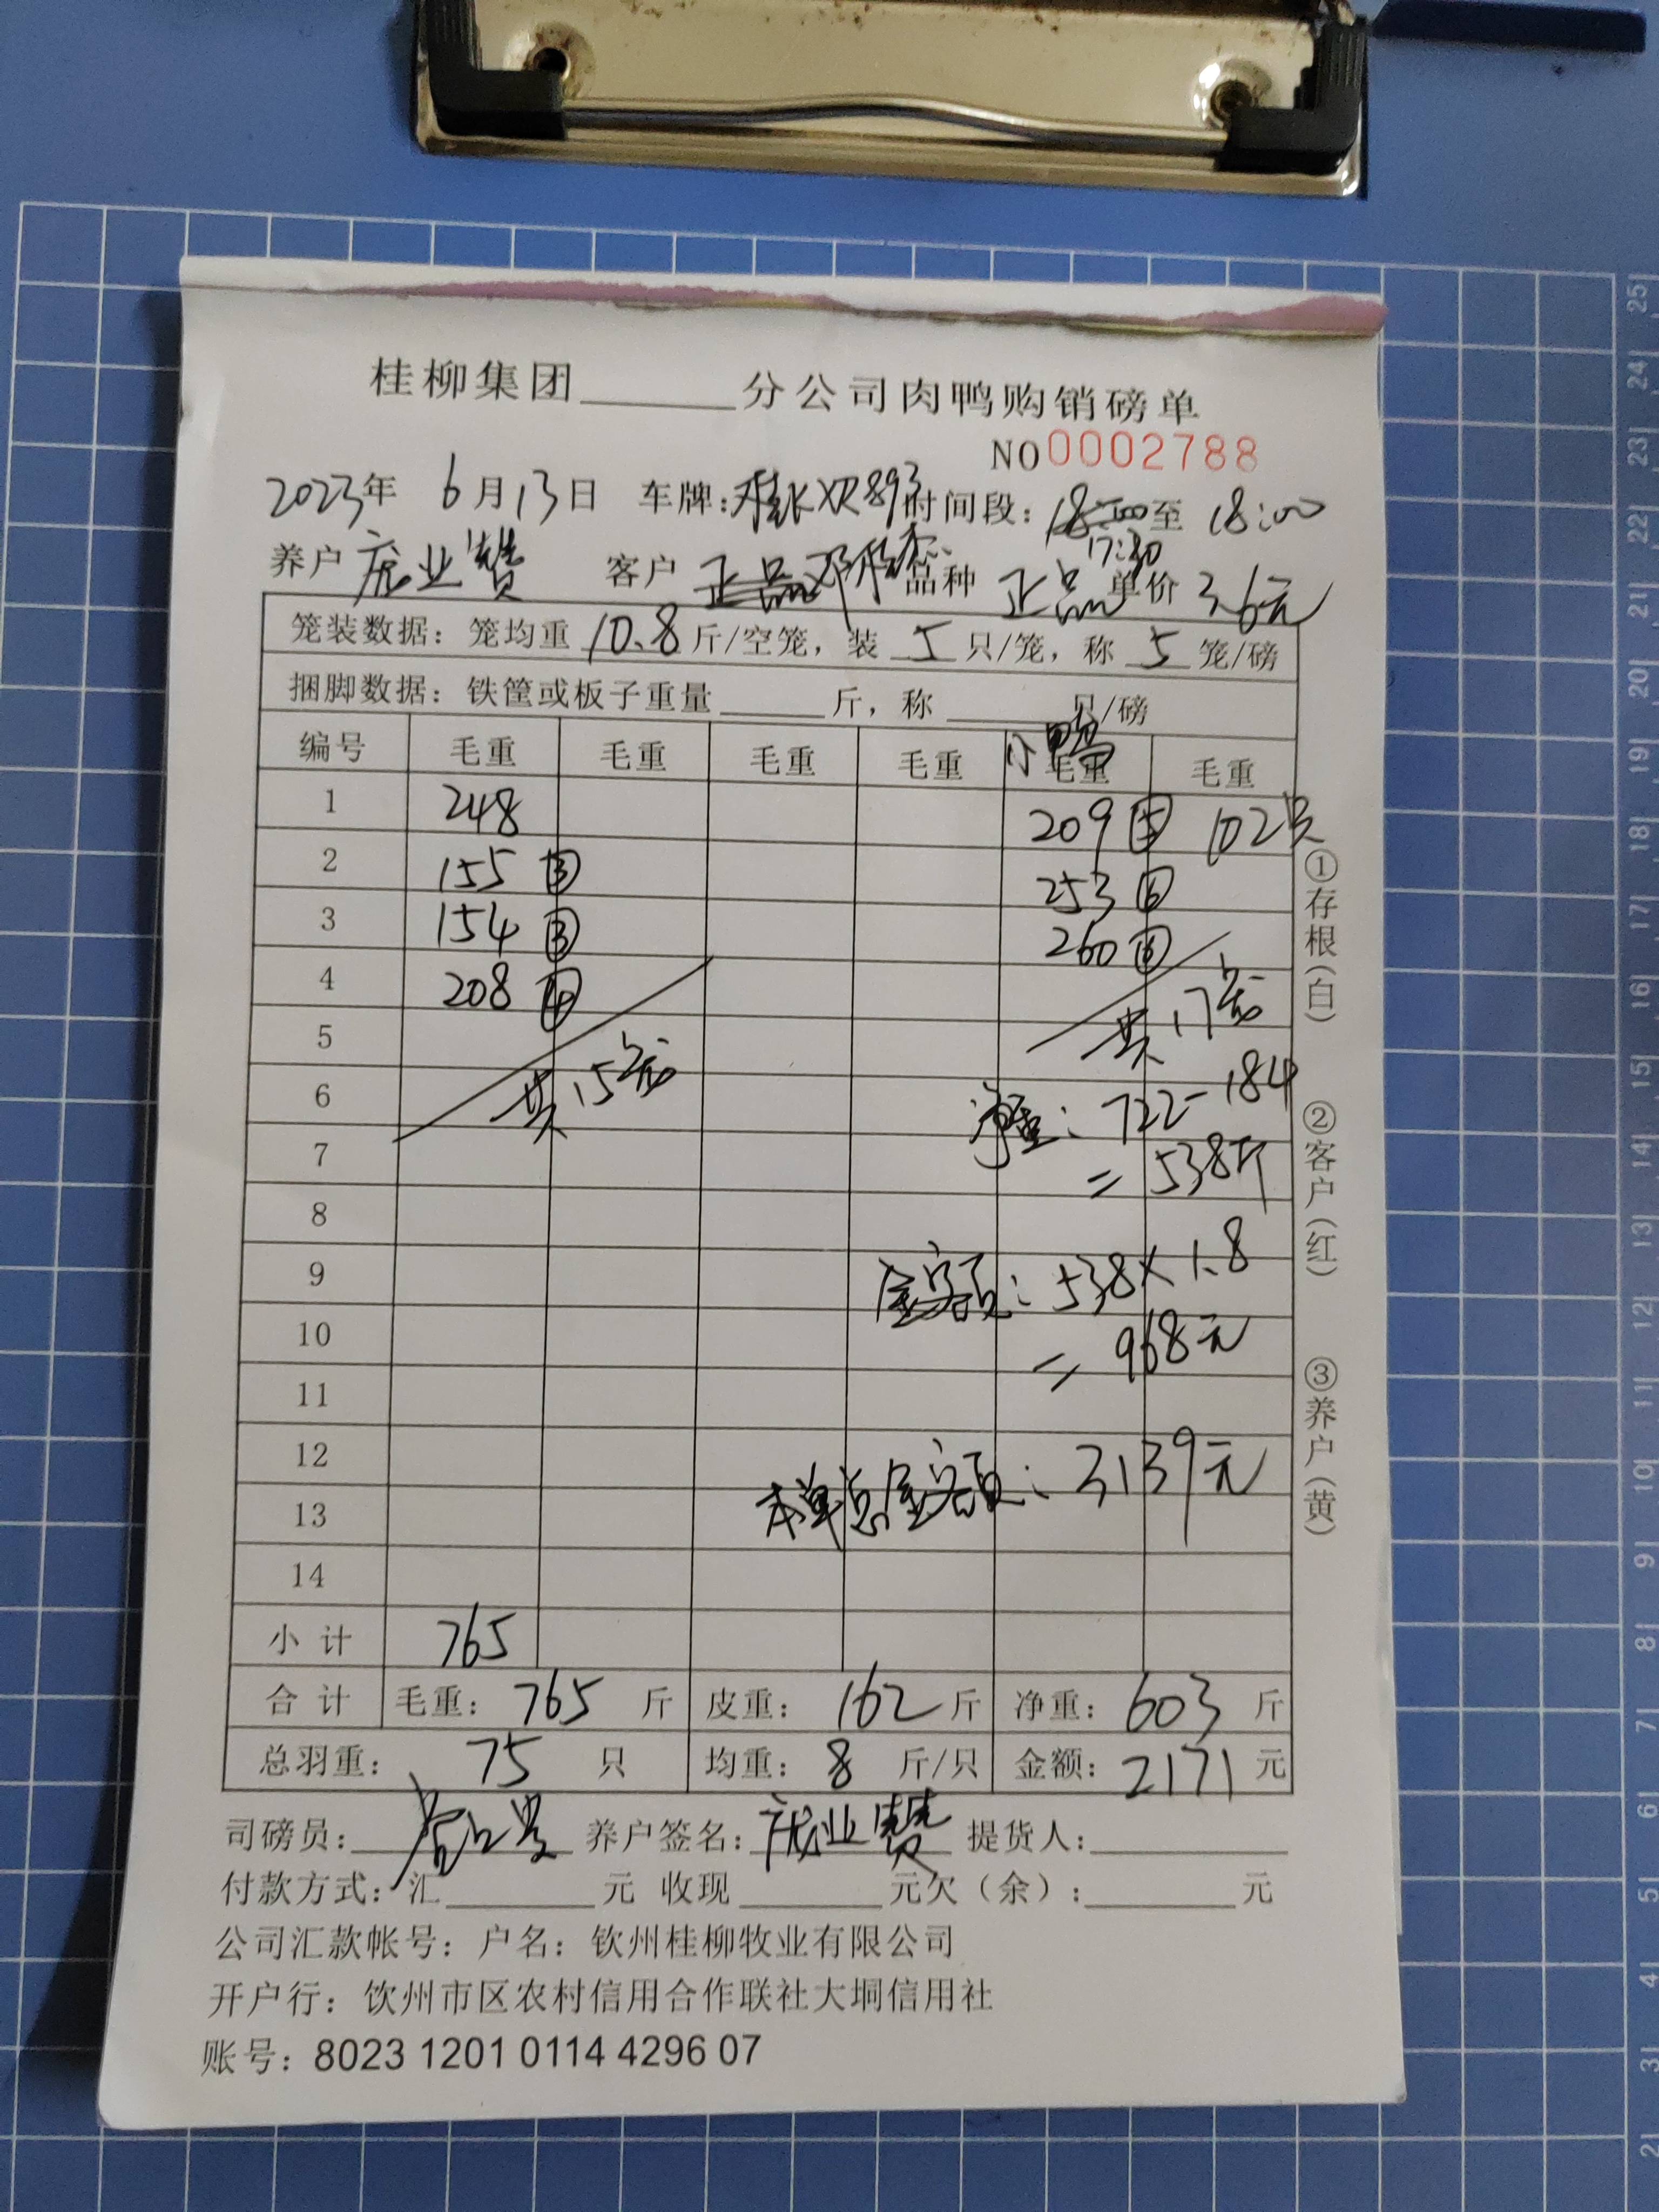 桂柳集团______分公司肉鸭购销磅单
NO0002788
2023年 6月13日 车牌: 时间段:18:00至 18:00
17:30
养户 庞业赞 客户 正品 品种 正品 单价 3.6元
笼装数据:笼均重 10.8 斤/空笼,装 5 只/笼,称 5 笼/磅
捆脚数据:铁筐或板子重量______斤,称______只/磅
编号 毛重 毛重 毛重 毛重 小鸭 毛重 毛重
1 248 209 ⑤ 102只
2 155 ③ 253 ⑥
3 154 ③ 260 ⑥
4 208 ④ 共17笼
5 共15笼
6 净重:722-184
7 =538斤
8
9 金额:538×1.8
10 =968元
11
12 本单总金额:3139元
13
14
小计 765
合计 毛重:765 斤 皮重:162 斤 净重:603 斤
总羽重:75 只 均重:8 斤/只 金额:2171 元
司磅员: 养户签名:庞业赞 提货人:
付款方式:汇______元 收现______元欠(余):______元
公司汇款帐号:户名:钦州桂柳牧业有限公司
开户行:钦州市区农村信用合作联社大垌信用社
账号:8023 1201 0114 4296 07
①存根(白)
②客户(红)
③养户(黄)
25
24
23
22
21
20
19
18
17
16
15
14
13
12
11
10
9
8
7
6
5
4
3
2